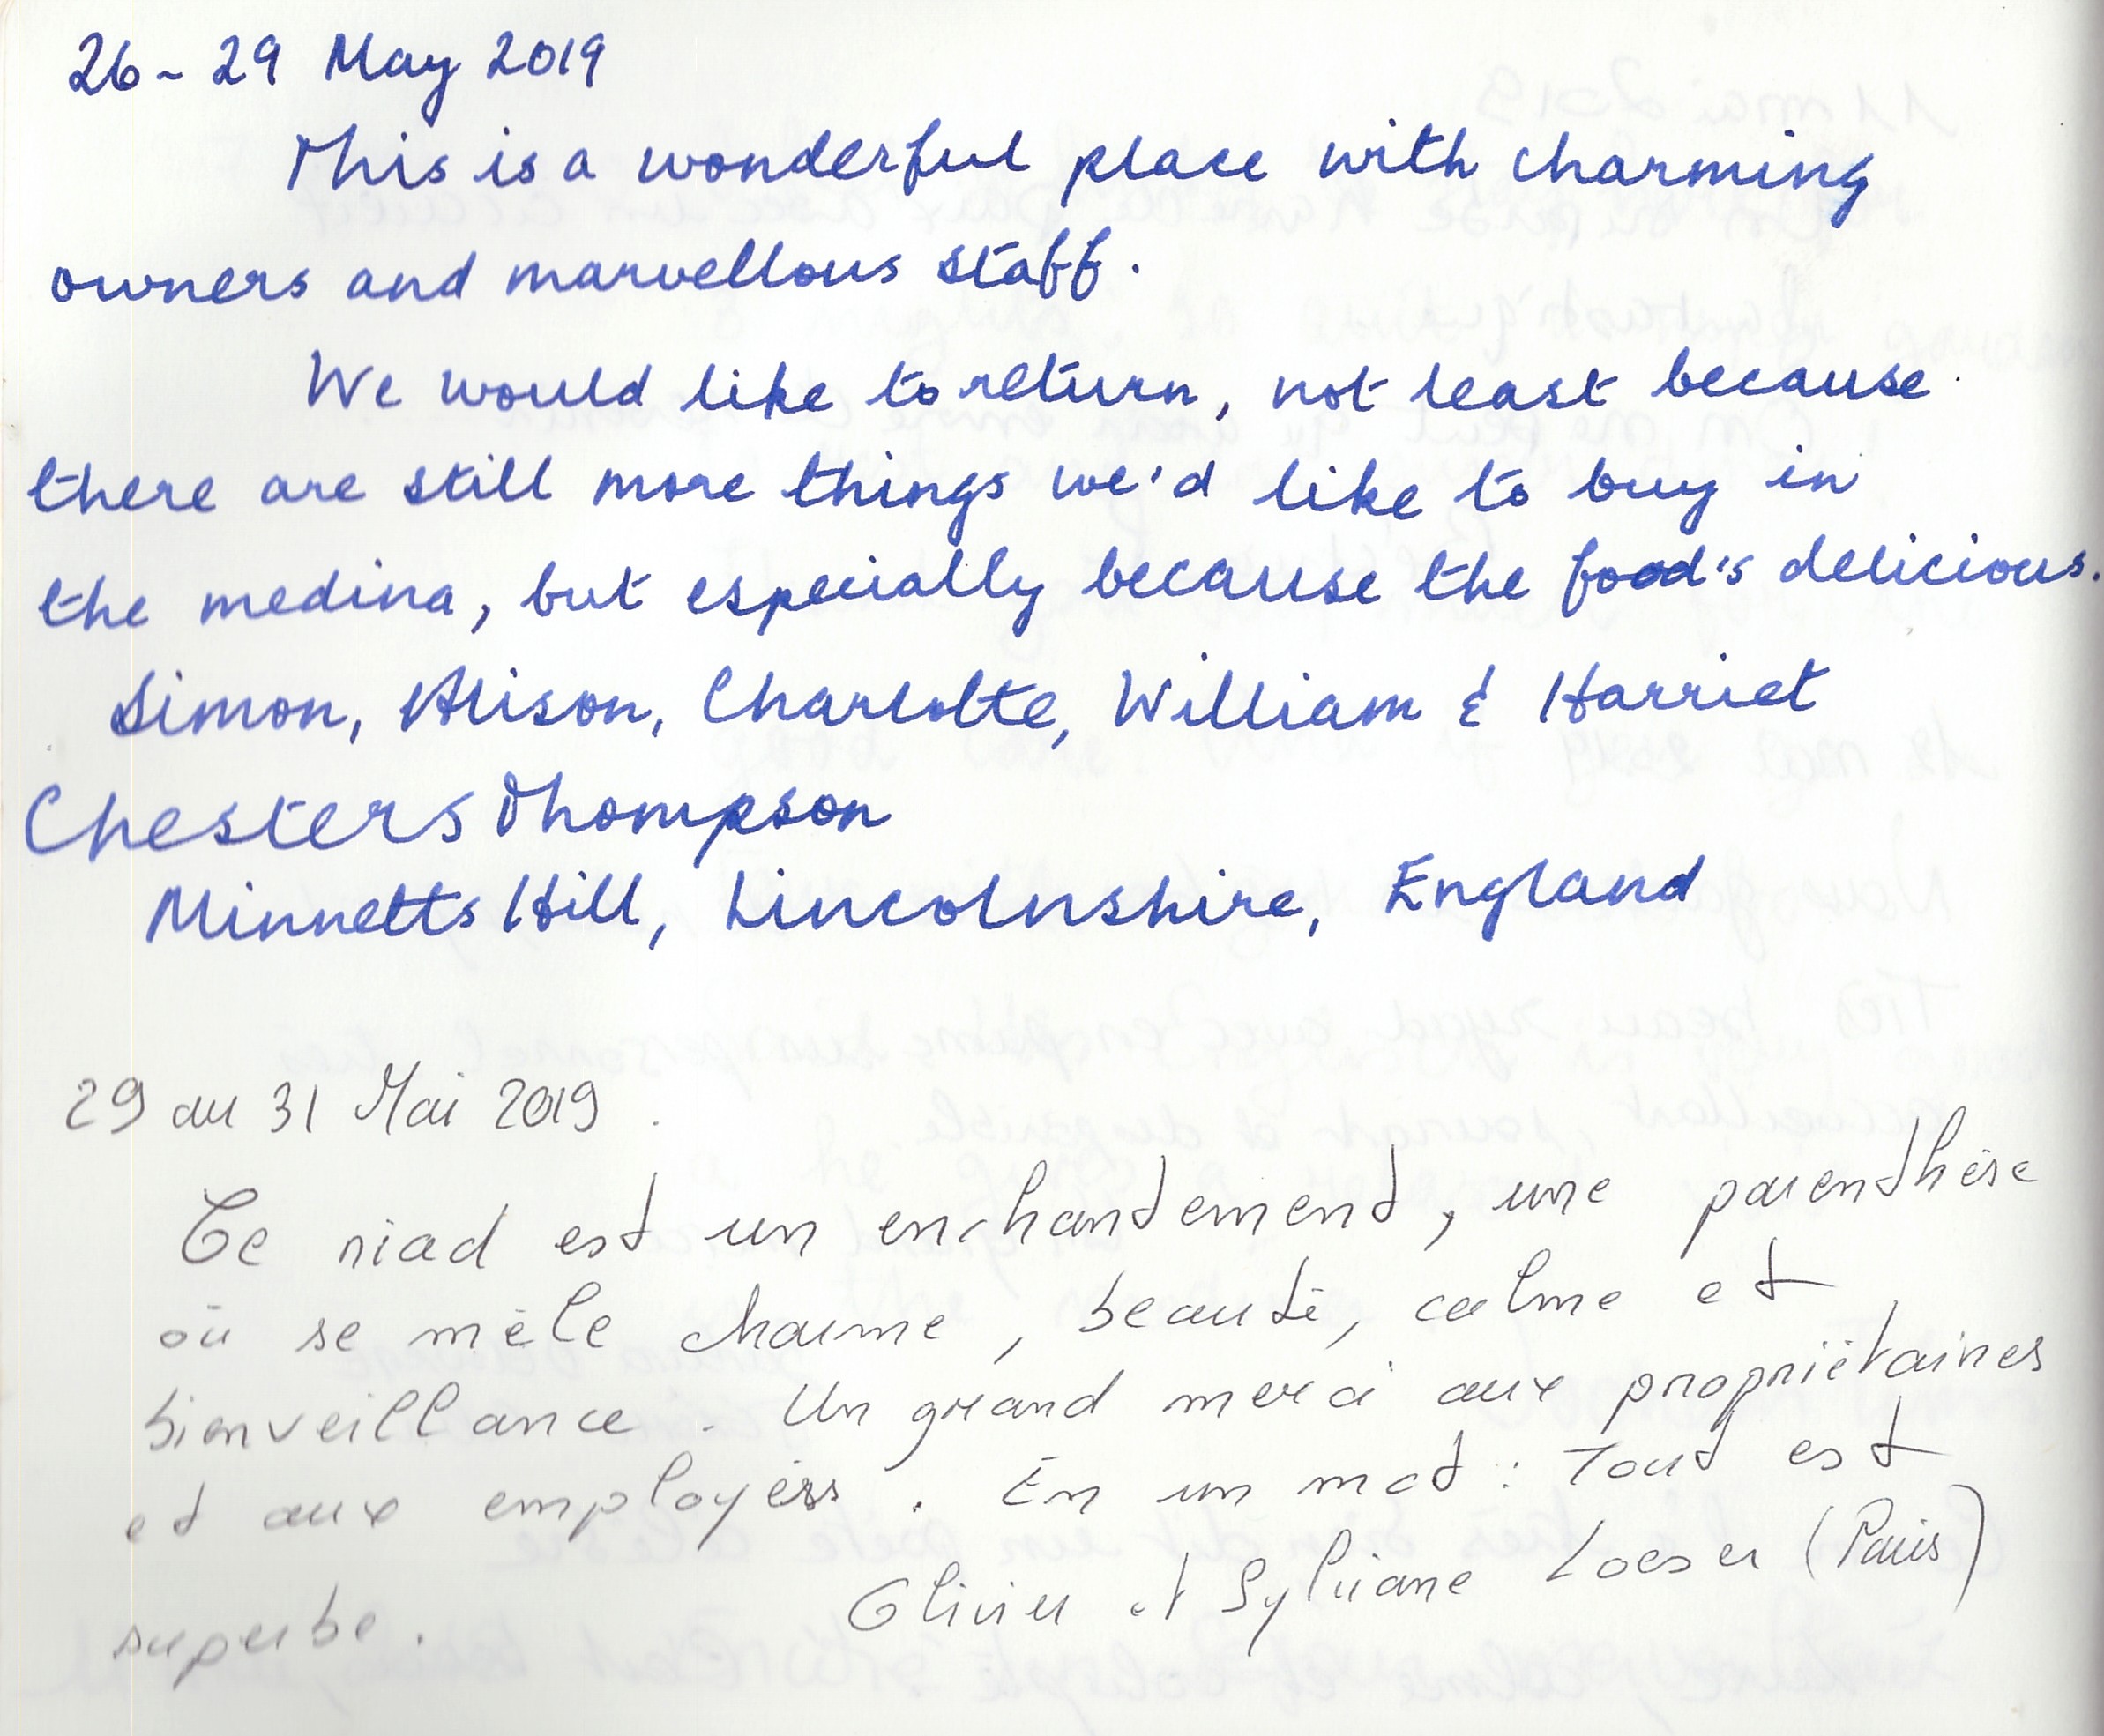 26 - 29 May 2019
This is a wonderful place with charming
owners and marvellous staff.
We would like to return, not least because
there are still more things we'd like to buy in
the medina, but especially because the food's delicious.
Simon, Alison, Charlotte, William & Harriet
Chesters Thompson
Minnetts Hill, Lincolnshire, England
29 au 31 Mai 2019.
Ce riad est un enchantement, une parenthèse
où se mêle charme, beauté, calme et
bienveillance. Un grand merci aux propriétaires
et aux employés. En un mot : Tout est
superbe.
Olivier et Sylviane Loeser (Paris)